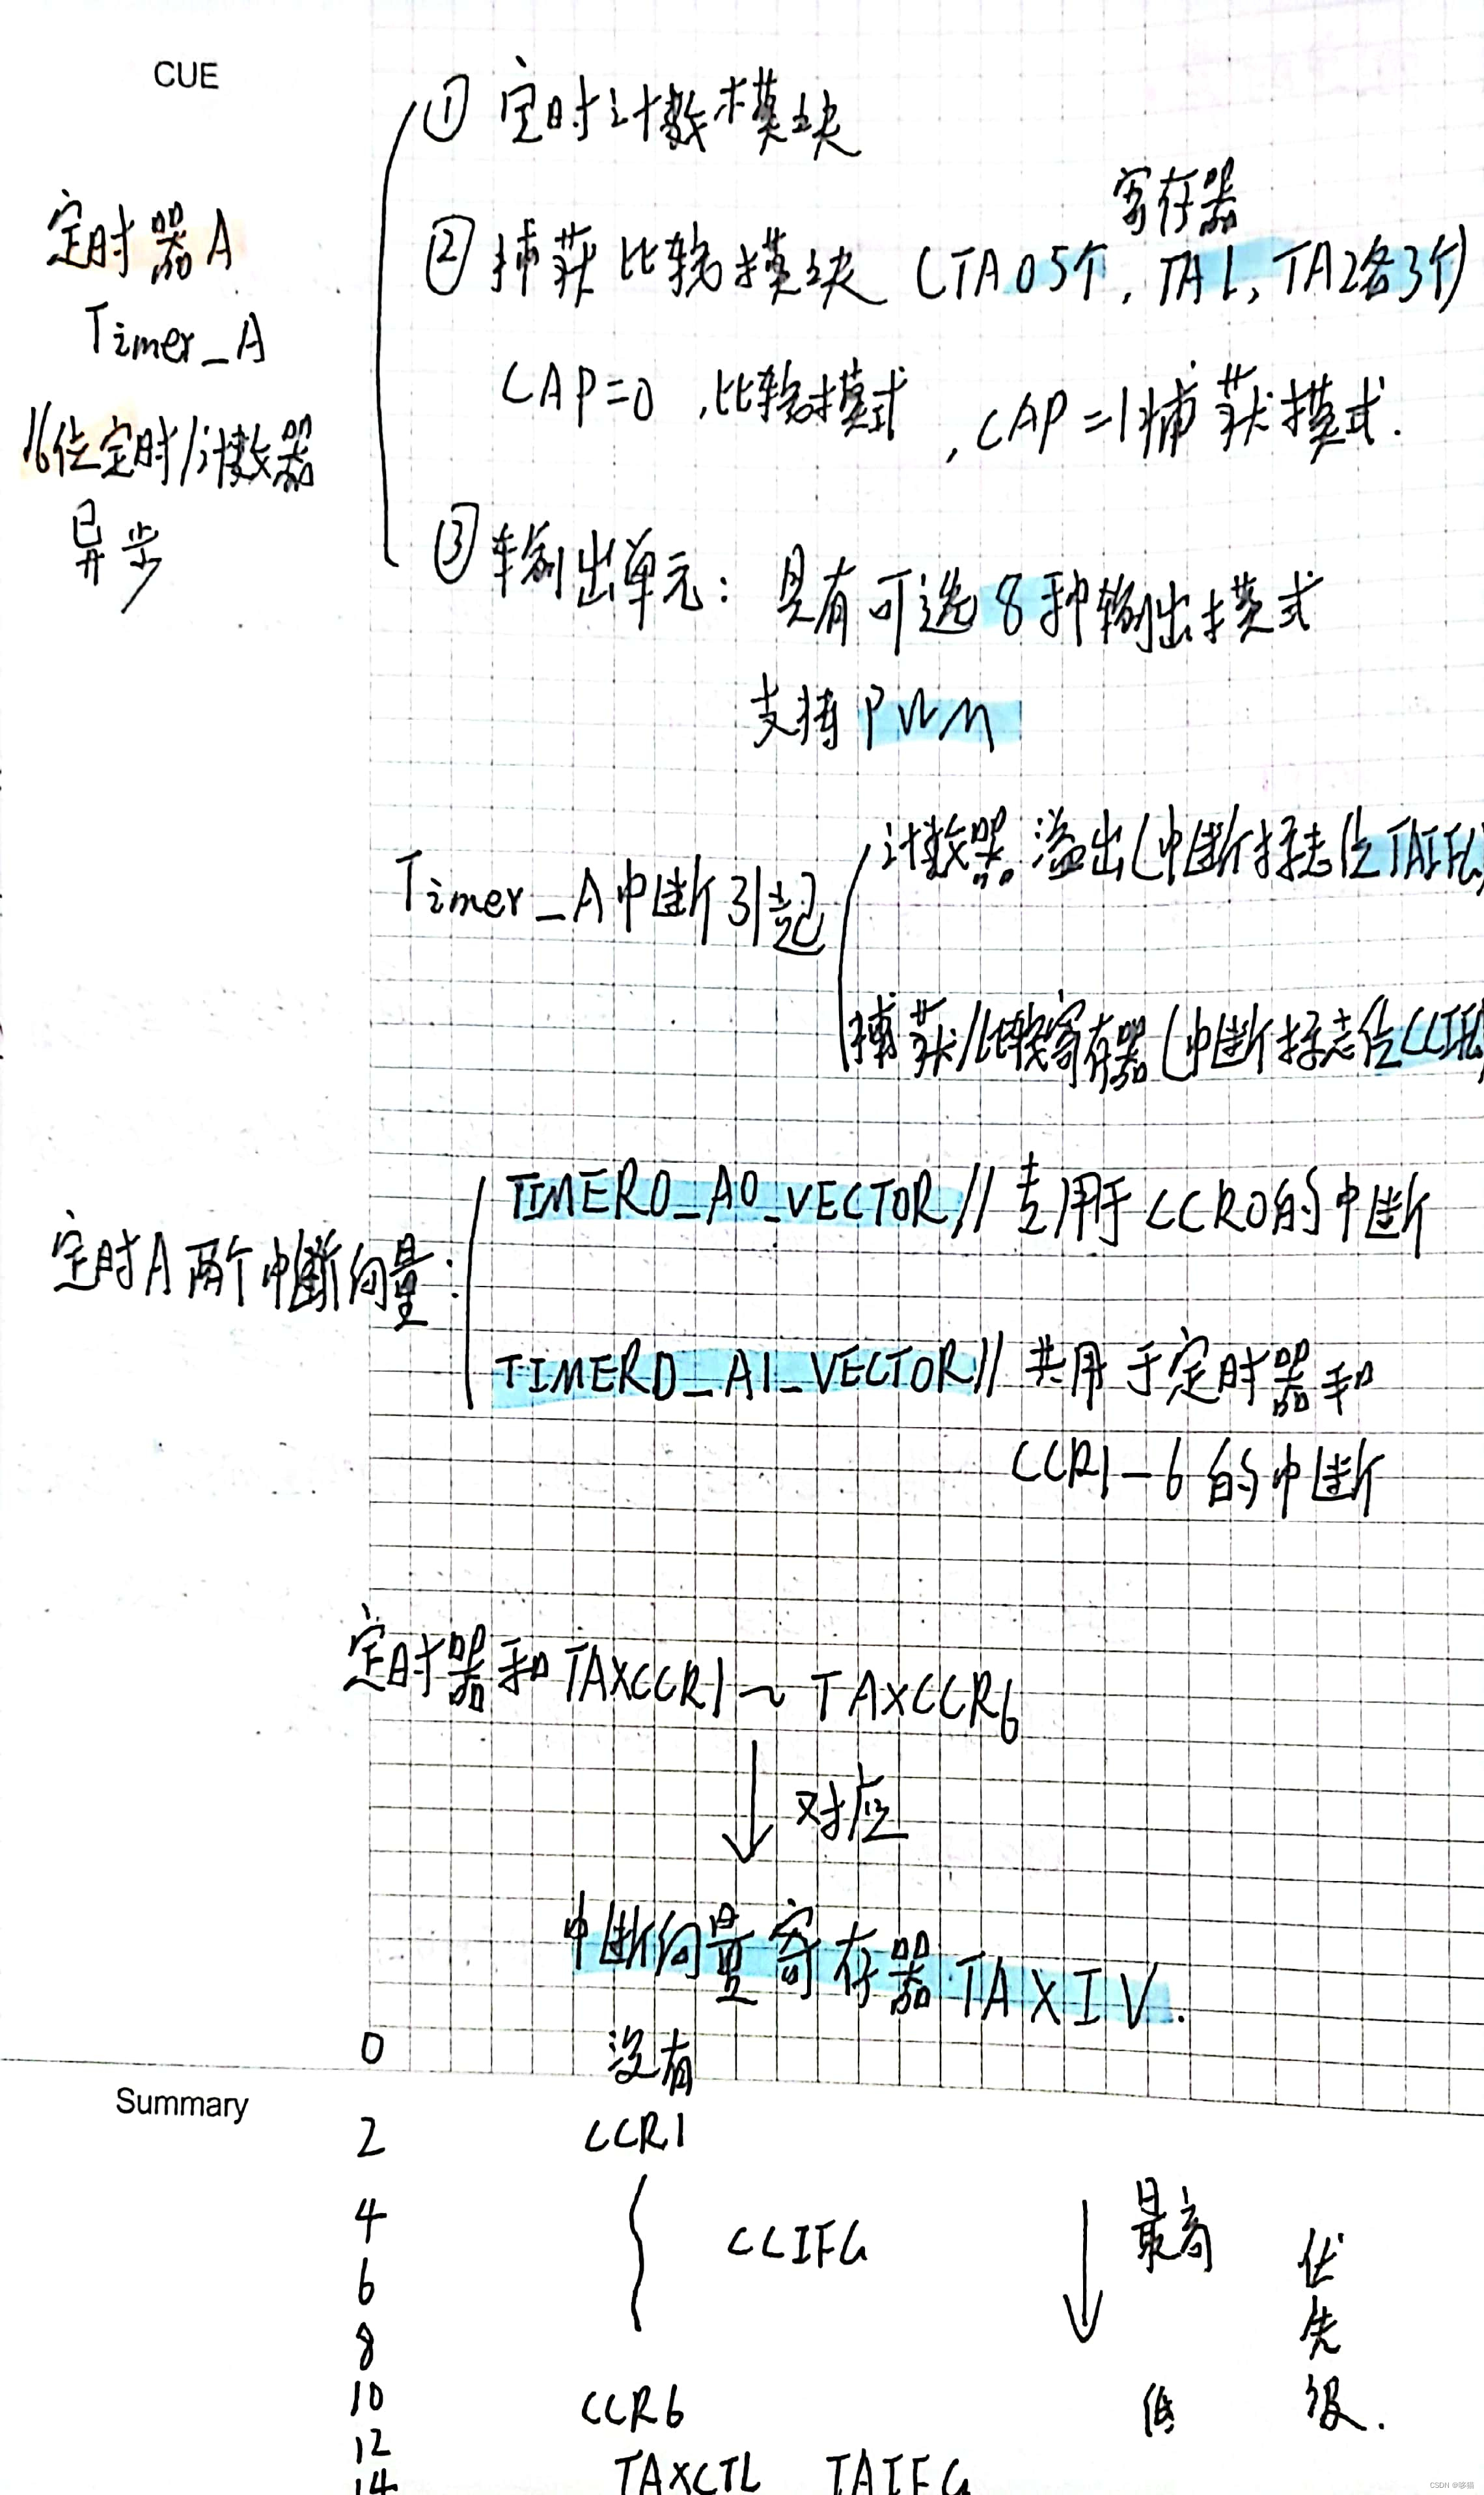 CUE
① 定时计数模块
寄存器
定时器A
② 捕获比较模块 (TA0 5个, TA1, TA2各3个)
Timer_A
CAP=0 ,比较模式 ,CAP=1捕获模式.
16位定时/计数器
异步
③ 输出单元: 具有可选8种输出模式
支持PWM
计数器溢出(中断标志位TAIFG
Timer_A中断引起
捕获/比较寄存器(中断标志位CCIFG
TIMER0_A0_VECTOR// 专用于CCR0的中断
定时A两个中断向量:
TIMER0_A1_VECTOR// 共用于定时器和
CCR1-6的中断
定时器和TAXCCR1~TAXCCR6
对应
中断向量寄存器TAXIV.
0 没有
Summary
2 CCR1
4 最高
CCIFG 优
6
先
8
10 CCR6 低 级.
12
14 TAXCTL TAIFG
CSDN @哆猫